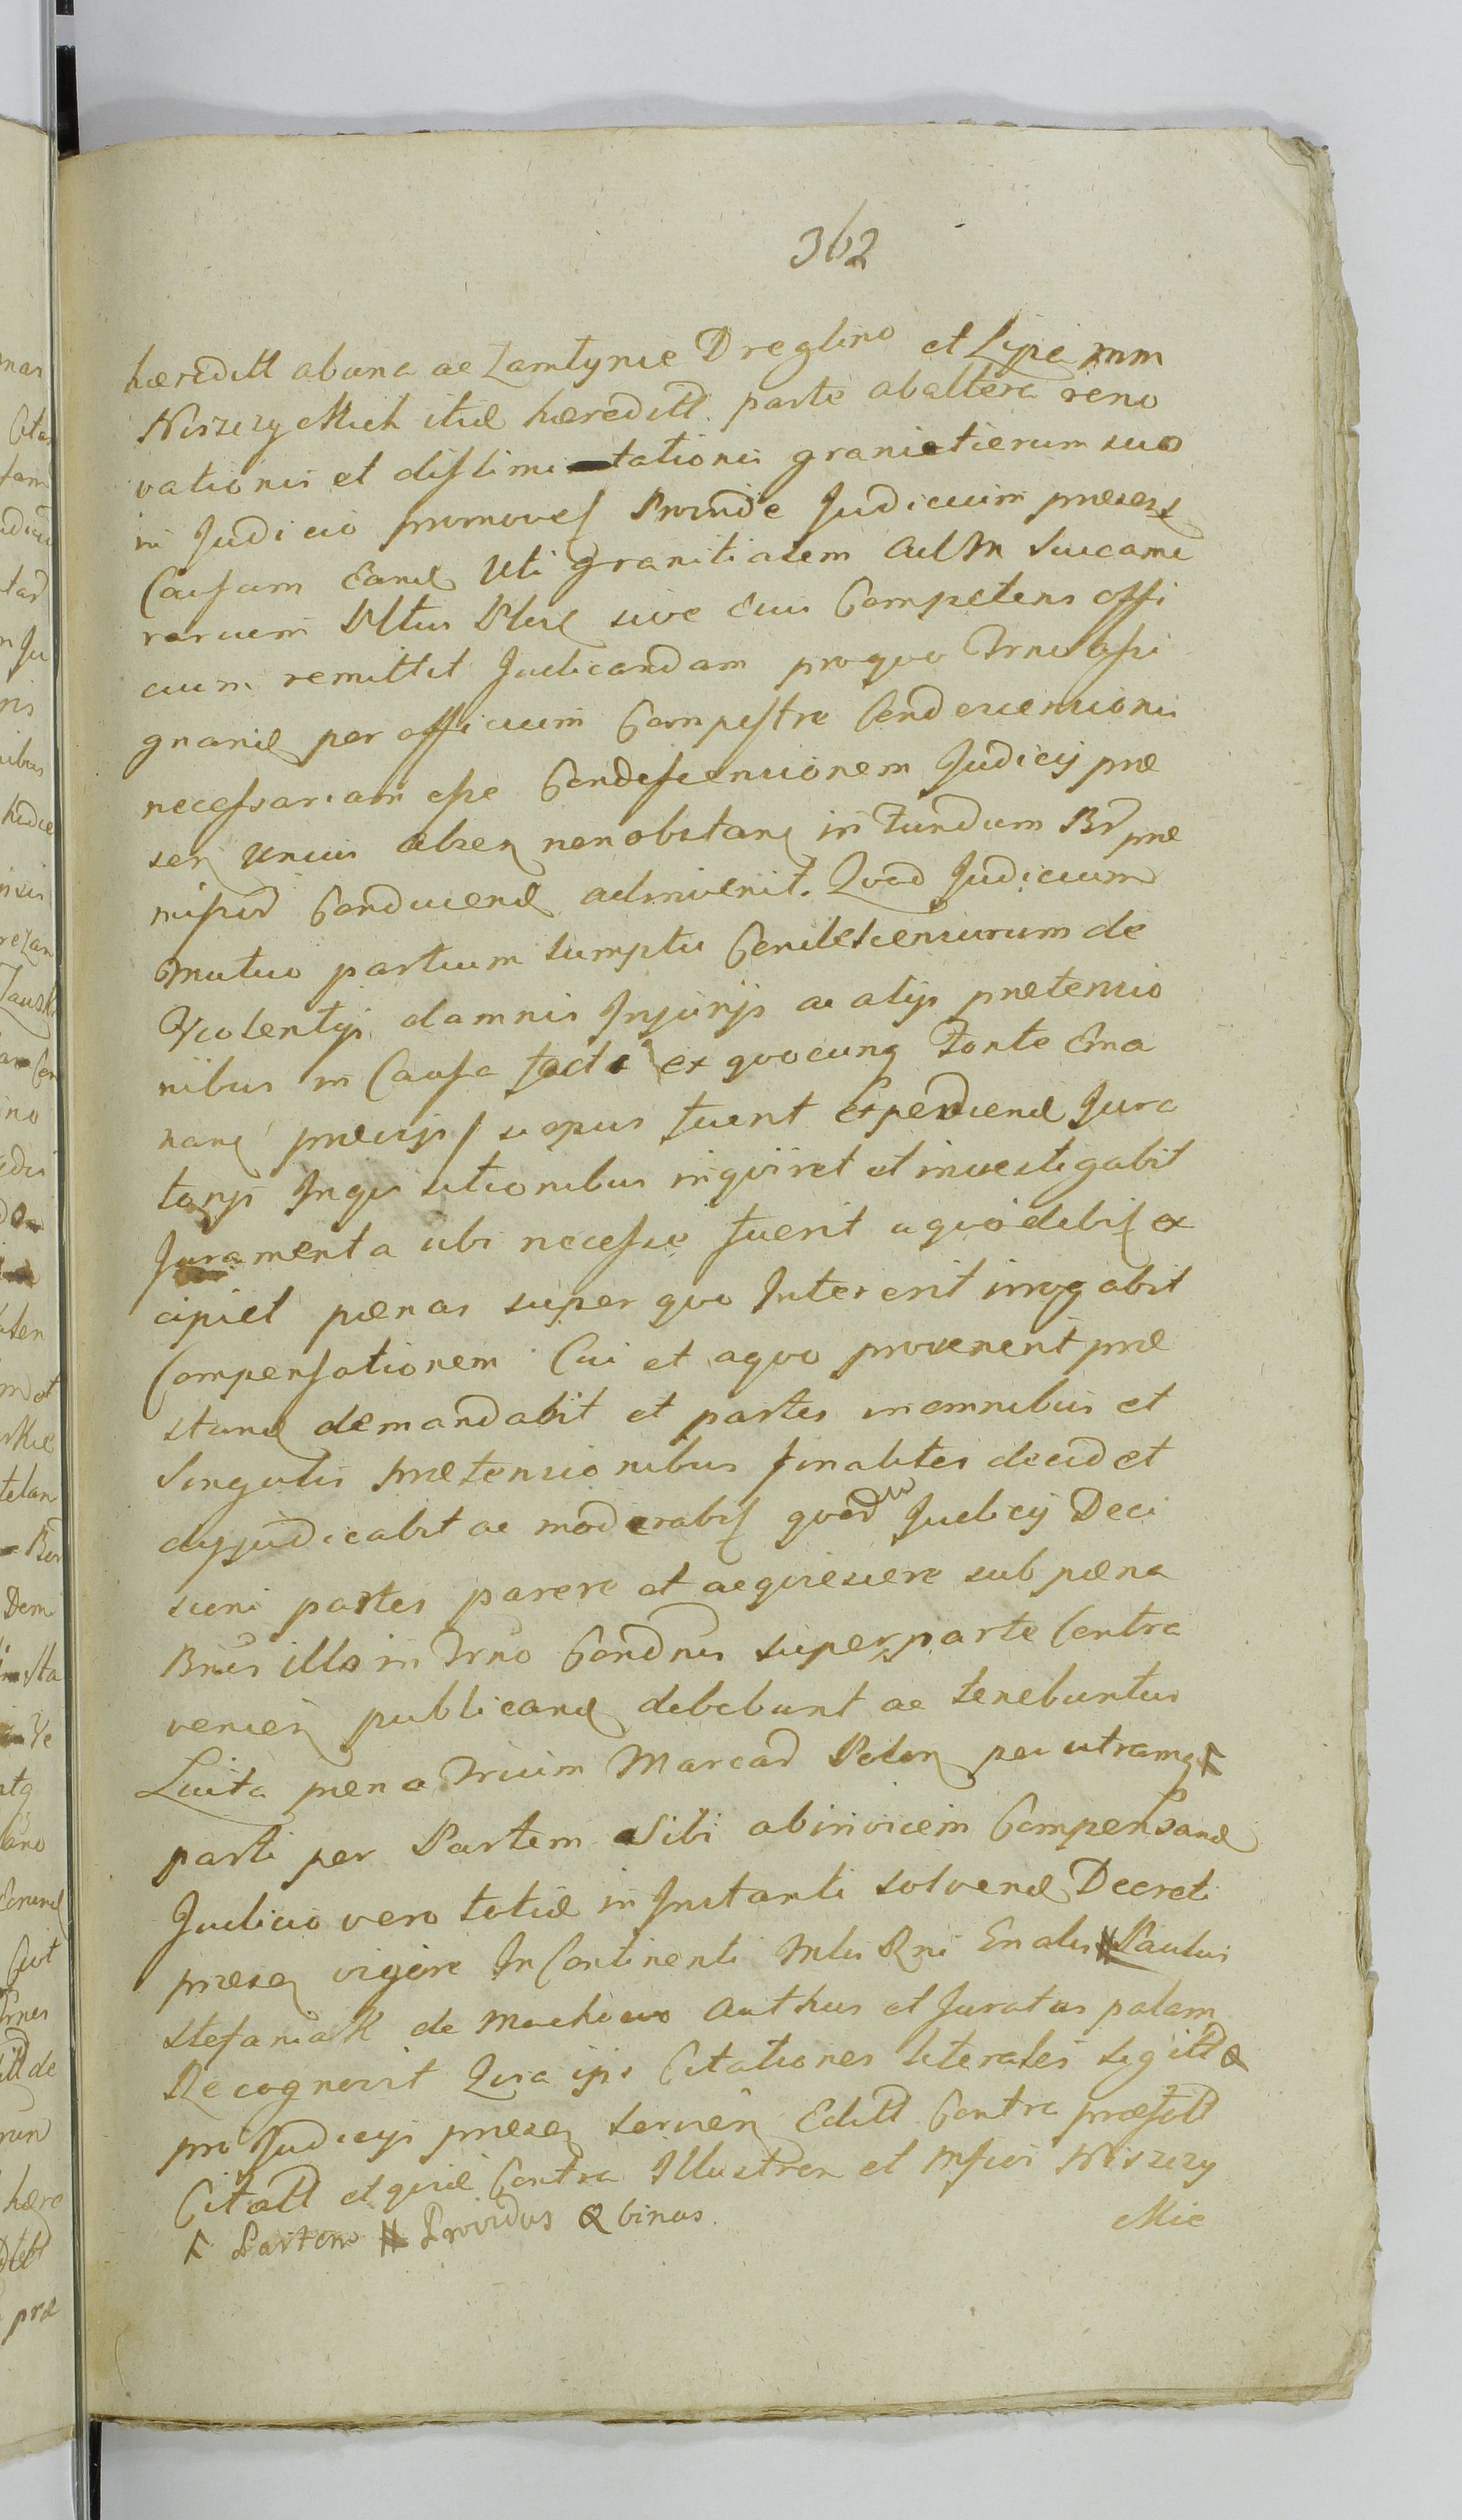 362
hæreditt ab una ac Zamtynie Dreglino et Lipa mm
Niszczyckich itid hæreditt. parte ab altera reno
vationis et dislimitationis granicierum suo
in Judicio promoves Proinde Judicium præsens
Causam Eand uti granitialem ad M Succame
rarium Pltus sive Eius Competens offi
cium remittit Judicandam pro quo Trno assi
gnand per officium Campestre Condescensionis
necessariam esse Condescensionem Judicij præ
sen unius absen non obstan in fundum Br præ
missor Conducend adinvenit. Quod Judicium
mutuo partium sumptu Condescensurum de
Violentijs damnis Injurijs ac alijs prætensio
nibus in Causa facti ex quocunq fonte Ema
nan prævijs si opus fuerit expediend Jura
torijs Inquisitionibus inquiret et investigabit
Juramenta ubi necesse fuerit a quo debis ex
cipiet pænas super quo Intererit irrogabit
Compensationem Cui et a quo provenerit præ
stand demandabit et partes in omnibus et
Singulis prætensionibus finaliter decidet
adjudicabit ac moderabis quod Judicij Deci
sioni partes parere et acquiescere sub pæna
Bnis illo in Trno Condnis super parte Contra
venien publicand debebunt ac tenebuntur
Luita pæna Trium Marcar Polon per utramq
parti per Partem Sibi ab invicem Compensand
Judicio vero totid in Instanti solvend Decreti
præsen vigore In Continenti Mlis Rni Gnalis # Paulus
Stefaniak de Mochowo Authus et Juratus palam
Recognovit Quia ipse Citationes literales sigitt &
pro Judicijs præsen servien Editt Contra præfatt
Citatt et quid Contra Illustren et Mfcos Niszczy
ckie
Γ Partem # Providus & binas.